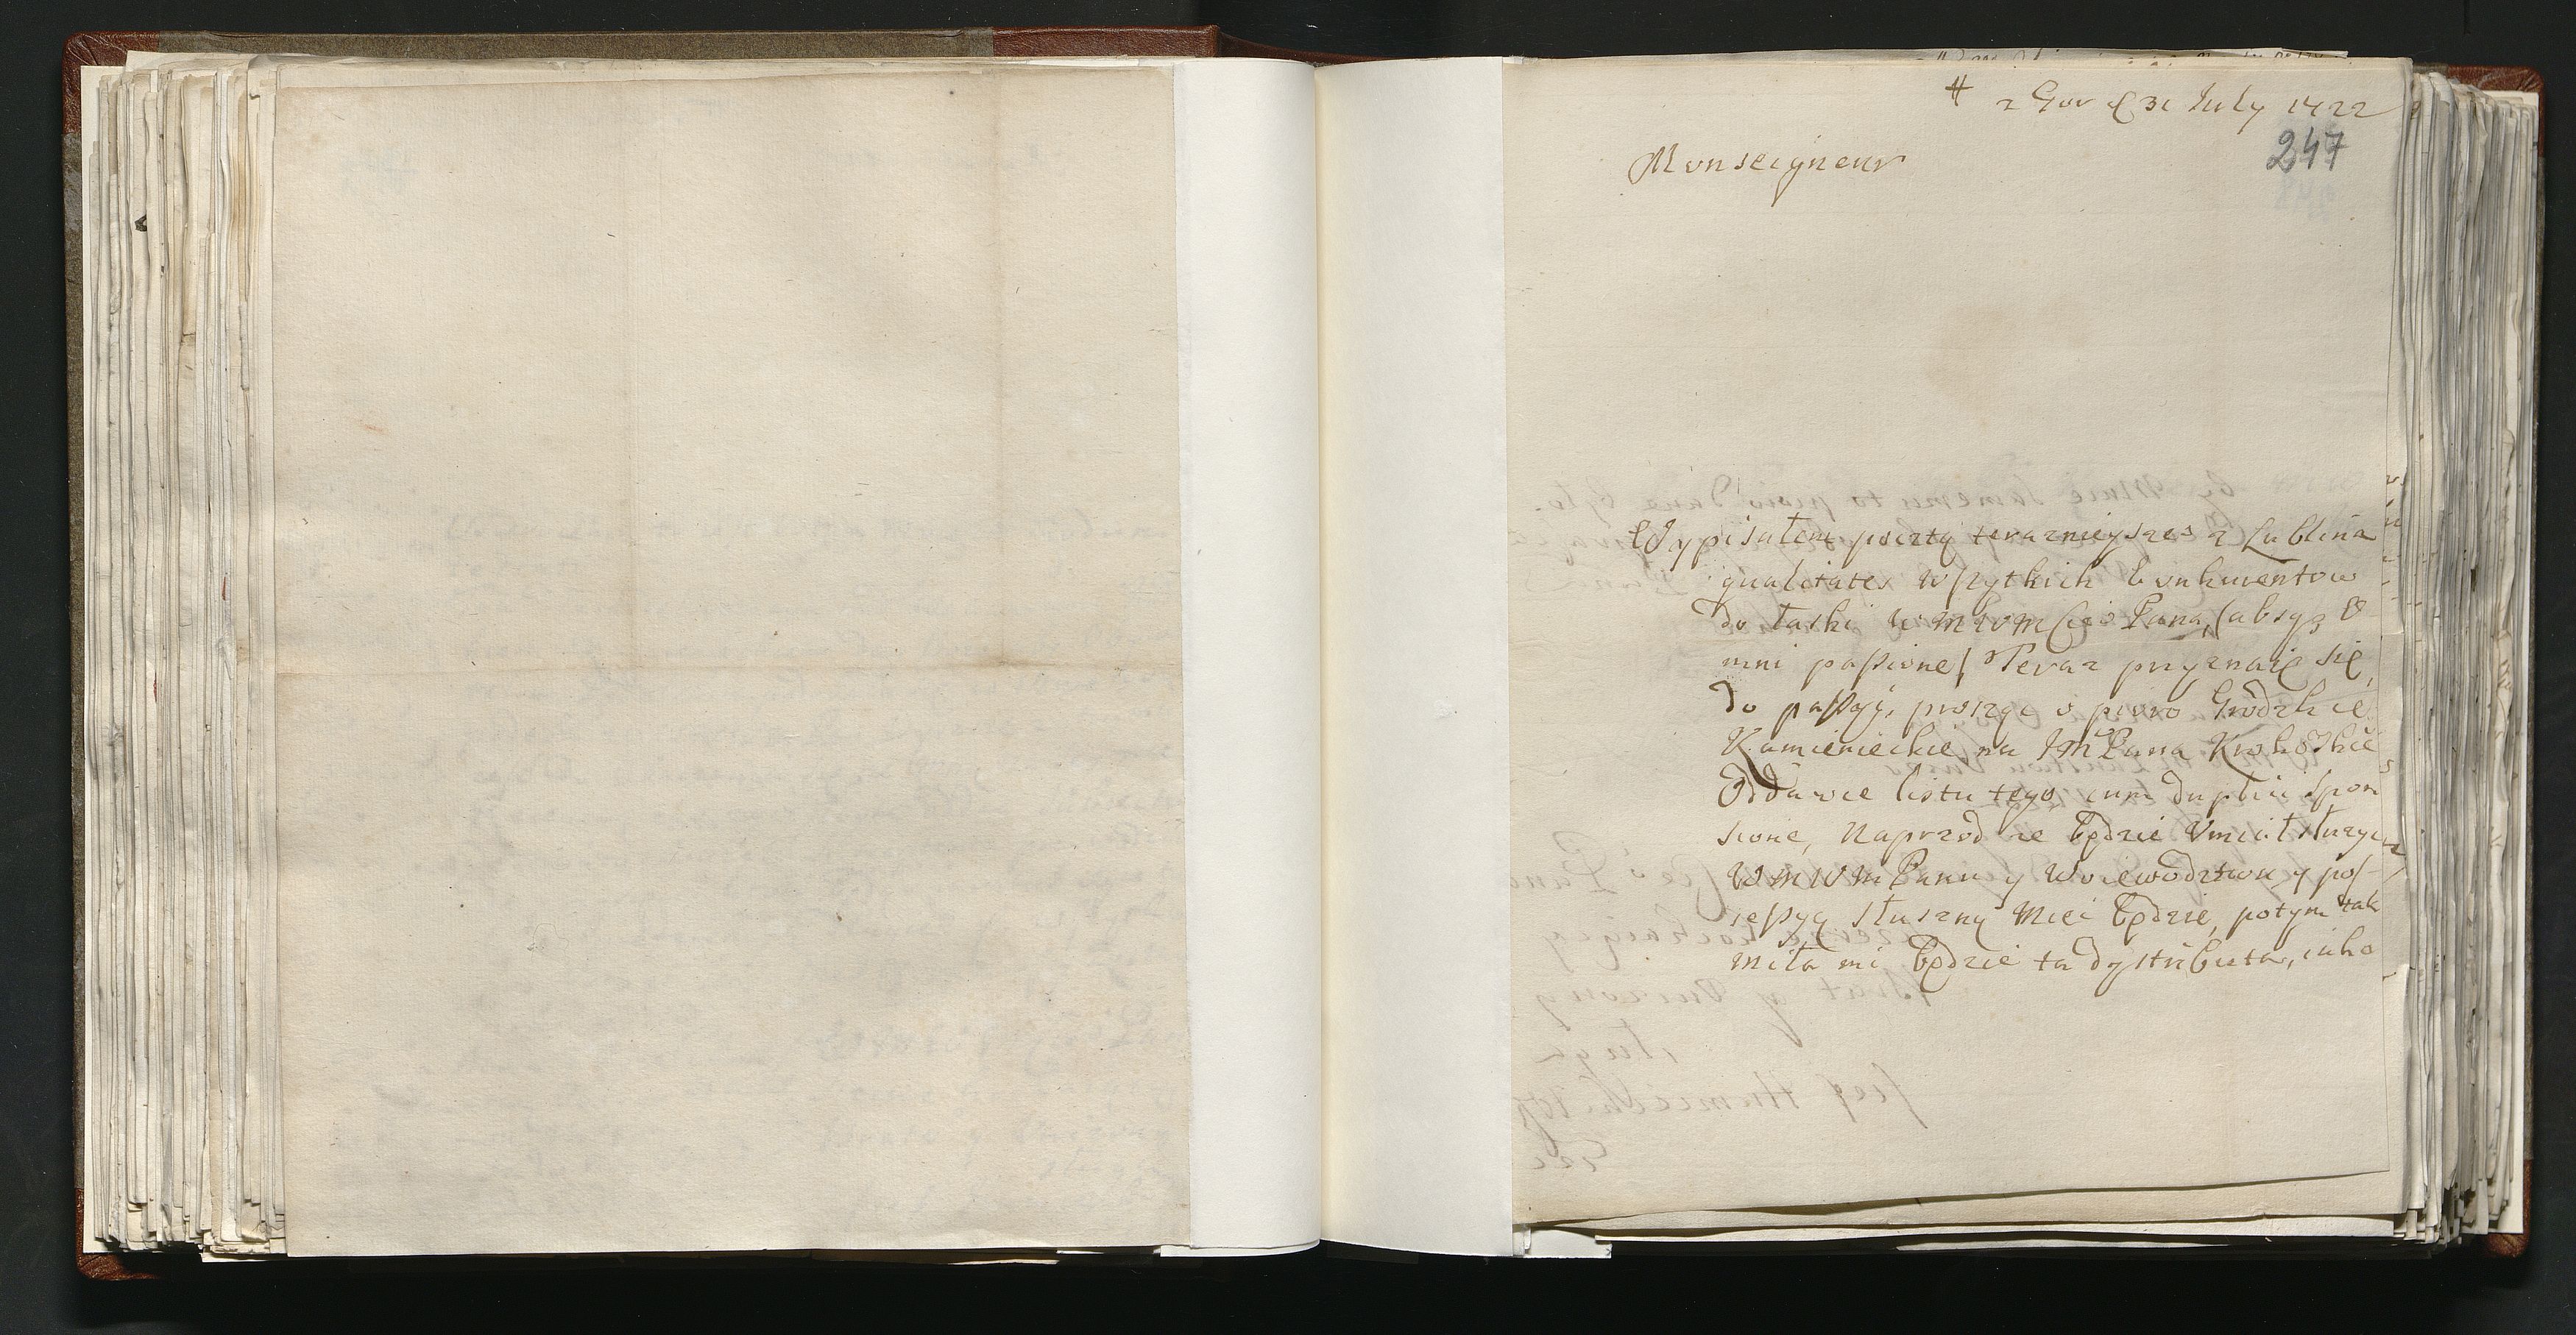 # z Gor d 31 July 1722
247
Monseigneur
Wypisałem pocztą teraznieyszą z Lublina
qualitates wszytkich konkurentow
do łaski WMWMPana, (absq3 O
mni passione) Teraz przyznaię się
do passyi, proszę o pioro Grodzkie
Kamienieckie na JmPana
Oddawcę listu tego, cum duplici spon
sione, Naprzod ze będzie Umiał słuzyc
WMWMPanu y Woiewodztwu y pos-
sessyą słuszną Mieć będzie, potym tak
miła mi będzie ta dystributa, iako